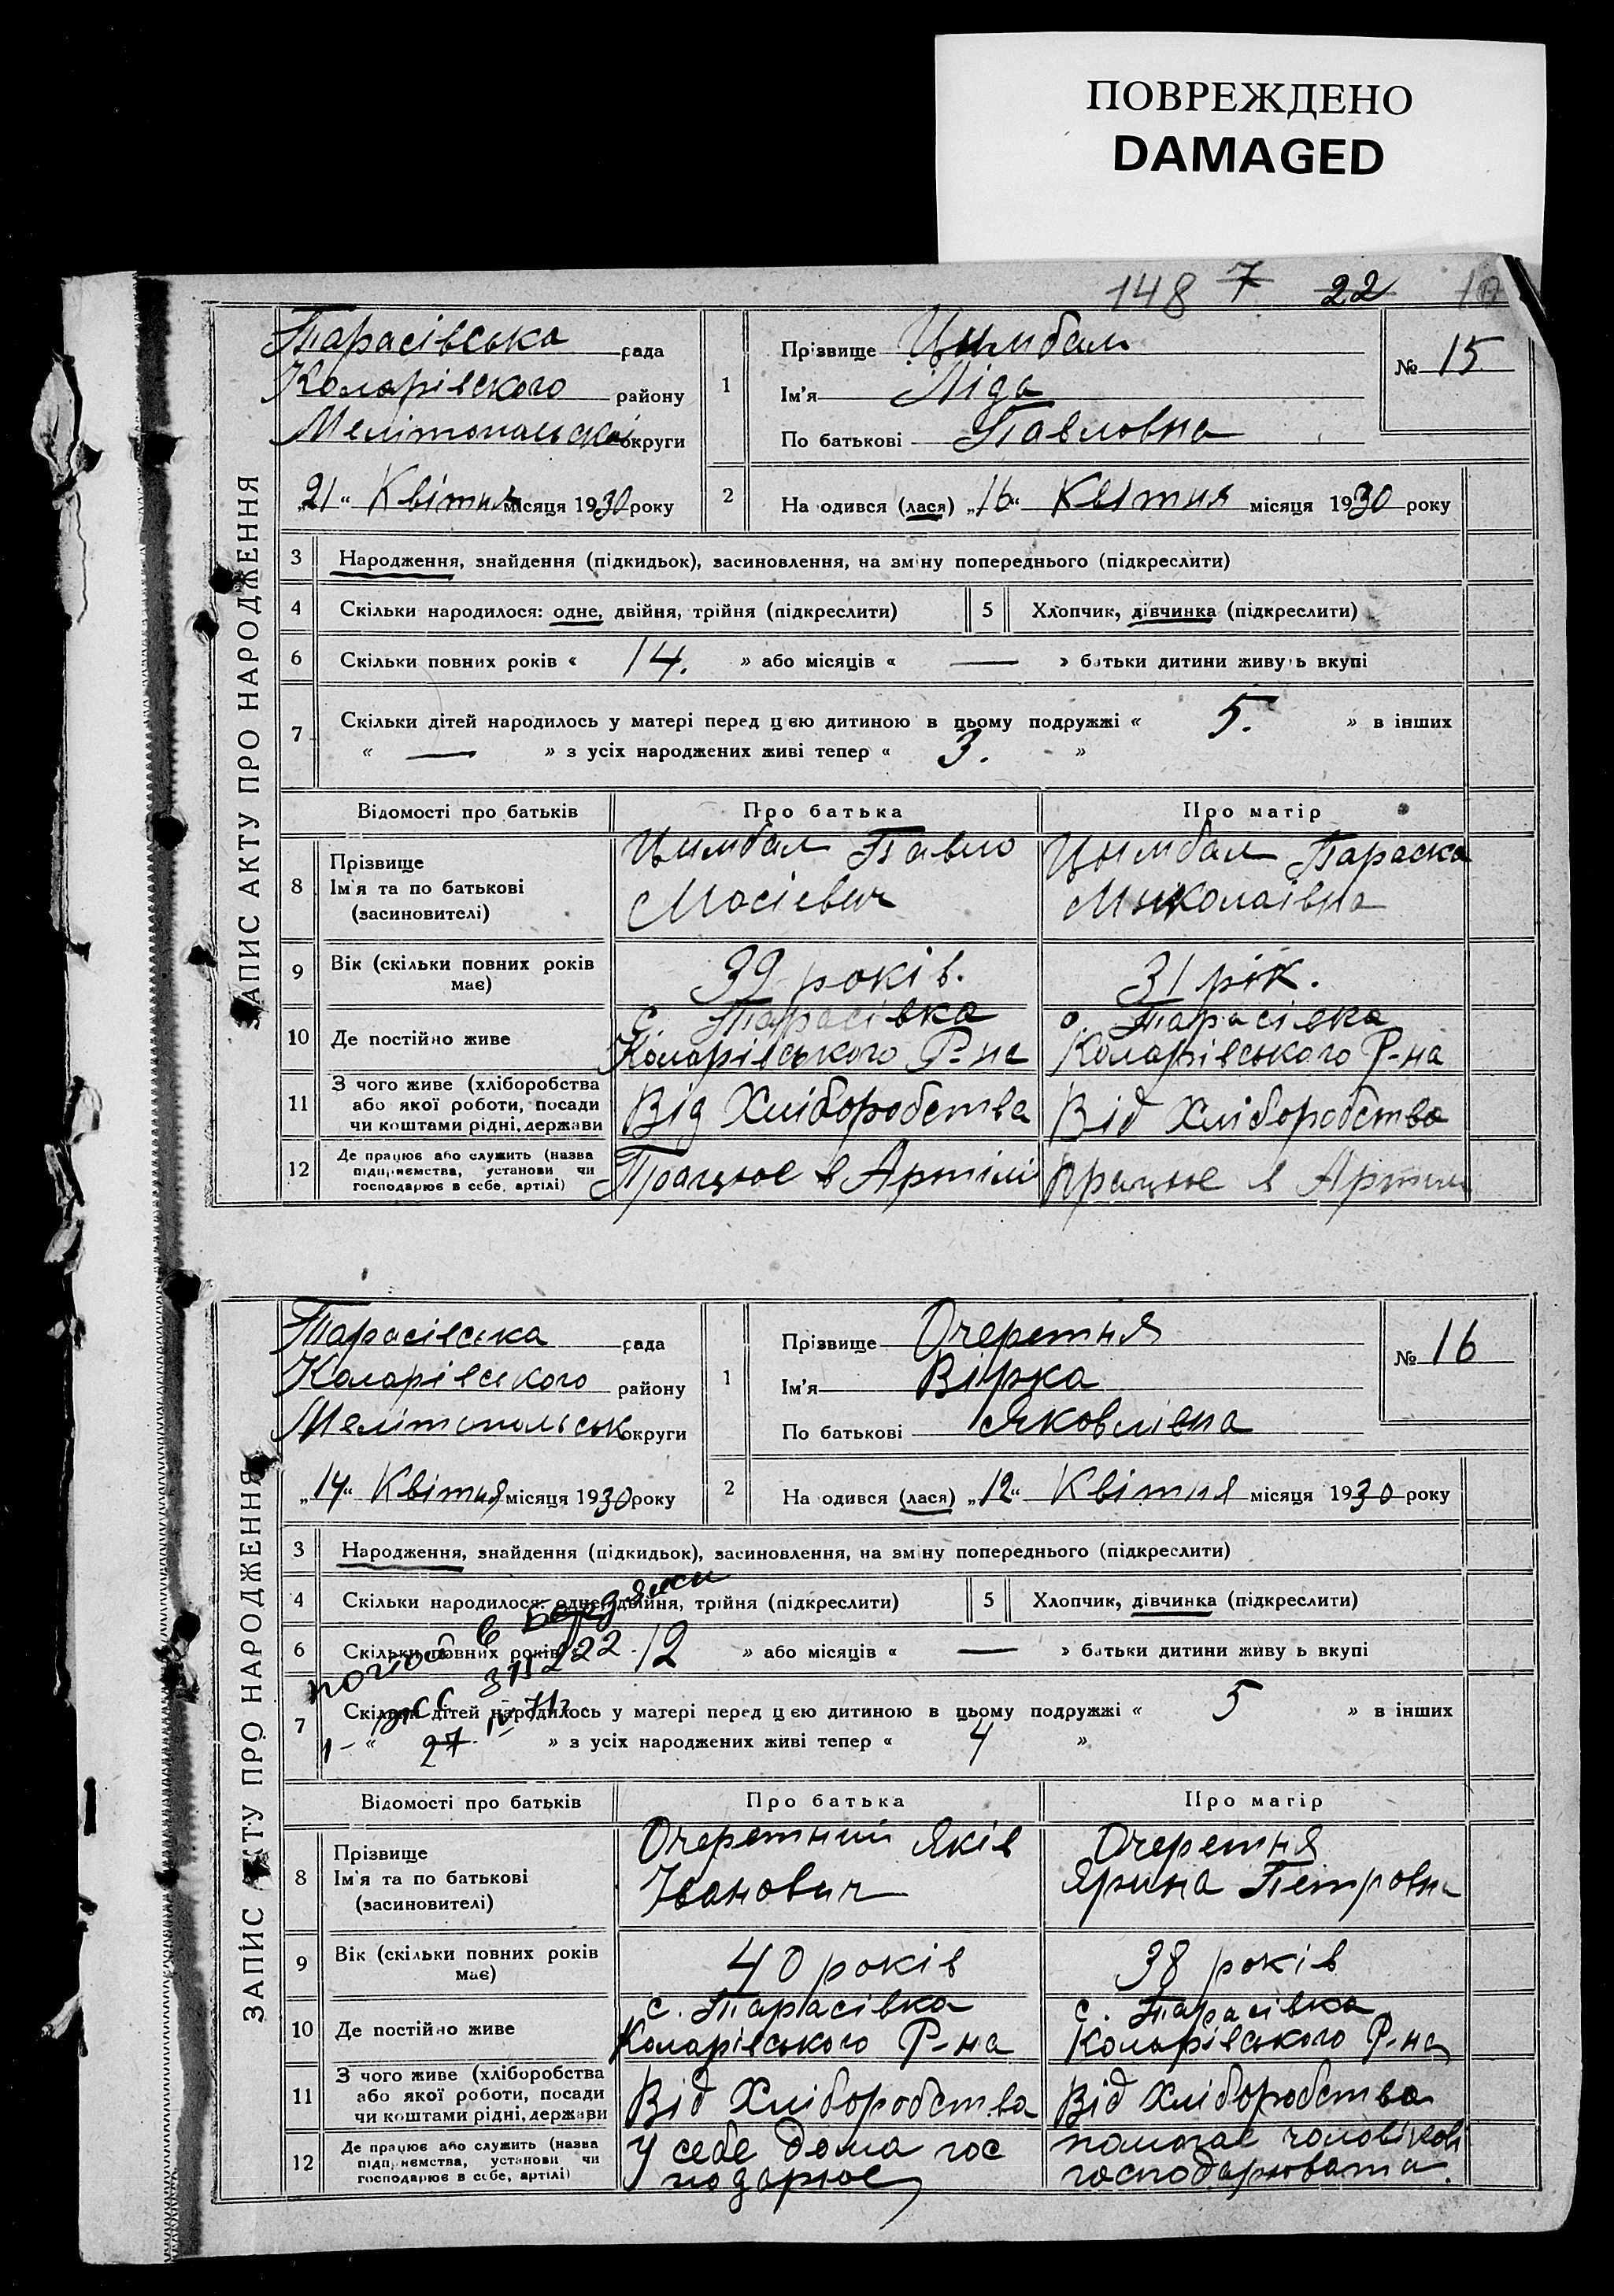 ПОВРЕЖДЕНО
DAMAGED
148 7 22
ЗАПИС АКТУ ПРО НАРОДЖЕННЯ
Тарасівська рада
Коларівского району
Мелітопальської округи
„21“ Квітня місяця 1930 року
1 Прізвище Цымбал
Ім'я Ліда
По батькові Павловна
№ 15
2 На одився (лася) „16“ Квітня місяця 1930 року
3 Народження, знайдення (підкидьок), засиновлення, на зміну попереднього (підкреслити)
4 Скільки народилося: одне, двійня, трійня (підкреслити) 5 Хлопчик, дівчинка (підкреслити)
6 Скільки повних років « 14. » або місяців « — » батьки дитини живуть вкупі
7 Скільки дітей народилось у матері перед цією дитиною в цьому подружжі « 5. » в інших
« — » з усіх народжених живі тепер « 3. »
Відомості про батьків Про батька Про матір
8 Прізвище
Ім'я та по батькові
(засиновителі)
Цымбал Павло
Мосієвич
Цымбал Параска
Миколаівна
9 Вік (скільки повних років
має)
39 років.
31 рік.
10 Де постійно живе
с. Тарасівка
Коларівського Р-на
с. Тарасівка
Коларівського Р-на
11 З чого живе (хліборобства
або якої роботи, посади
чи коштами рідні, держави
Від Хліборобства
Від Хліборобства
12 Де працює або служить (назва
підприємства, установи чи
господарює в себе, артілі)
Працює в Артілі
Працює в Артили
ЗАПИС АКТУ ПРО НАРОДЖЕННЯ
Тарасівська рада
Коларівского району
Мелітопольськ округи
„14“ Квітня місяця 1930 року
1 Прізвище Очеретня
Ім'я Вірка
По батькові Яковлівна
№ 16
2 На одився (лася) „12“ Квітня місяця 1930 року
3 Народження, знайдення (підкидьок), засиновлення, на зміну попереднього (підкреслити)
4 Скільки народилося: одне, двійня, трійня (підкреслити) 5 Хлопчик, дівчинка (підкреслити)
6 Скільки повних років « 12 » або місяців « — » батьки дитини живу ь вкупі
7 Скільки дітей народилось у матері перед цією дитиною в цьому подружжі « 5 » в інших
« » з усіх народжених живі тепер « 4 »
Відомості про батьків Про батька Про матір
8 Прізвище
Ім'я та по батькові
(засиновителі)
Очеретний Яків
Іванович
Очеретня
Ярина Петровна
9 Вік (скільки повних років
має)
40 років
38 років
10 Де постійно живе
с. Тарасівка
Коларівського Р-на
с. Тарасівка
Коларівського Р-на
11 З чого живе (хліборобства
або якої роботи, посади
чи коштами рідні, держави
Від Хліборобства
Від Хліборобства
12 Де працює або служить (назва
підприємства, установи чи
господарює в себе, артілі)
У себе дома гос
подарює
помогає чоловікові
господарювати.